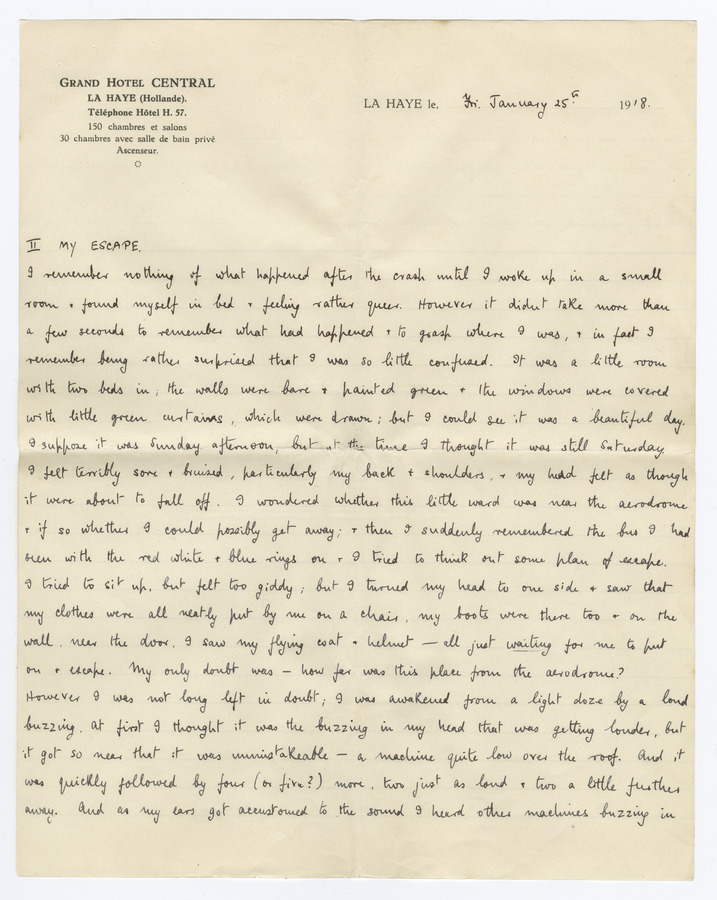 GRAND HOTEL CENTRAL
LA HAYE (Hollande).
Téléphone Hôtel H. 57.
150 chambres et salons
30 chambres avec salle de bain privé
Ascenseur.
LA HAYE le, Fri. January 25th 1918.
II MY ESCAPE.
I remember nothing of what happened after the crash until I woke up in a small
room & found myself in bed & feeling rather queer. However it didn't take more than
a few seconds to remember what had happened & to grasp where I was, & in fact I
remember being rather surprised that I was so little confused. It was a little room
with two beds in; the walls were bare & painted green & the windows were covered
with little green curtains, which were drawn; but I could see it was a beautiful day.
I suppose it was Sunday afternoon, but at the time I thought it was still Saturday.
I felt terribly sore & bruised, particularly my back & shoulders, & my head felt as though
it were about to fall off. I wondered whether this little ward was near the aerodrome
& if so whether I could possibly get away; & then I suddenly remembered the bus I had
seen with the red white & blue rings on & I tried to think out some plan of escape.
I tried to sit up, but felt too giddy; but I turned my head to one side & saw that
my clothes were all neatly put by me on a chair, my boots were there too & on the
wall, near the door, I saw my flying coat & helmet — all just waiting for me to put
on & escape. My only doubt was — how far was this place from the aerodrome?
However I was not long left in doubt; I was awakened from a light doze by a loud
buzzing. At first I thought it was the buzzing in my head that was getting louder, but
it got so near that it was unmistakeable — a machine quite low over the roof. And it
was quickly followed by four (or five?) more, two just as loud & two a little further
away. And as my ears got accustomed to the sound I heard other machines buzzing in